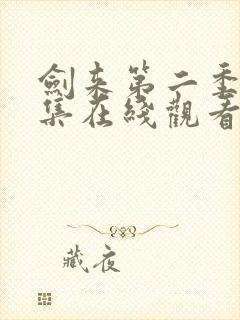 劍来第二季
集在綫觀看
藏夜